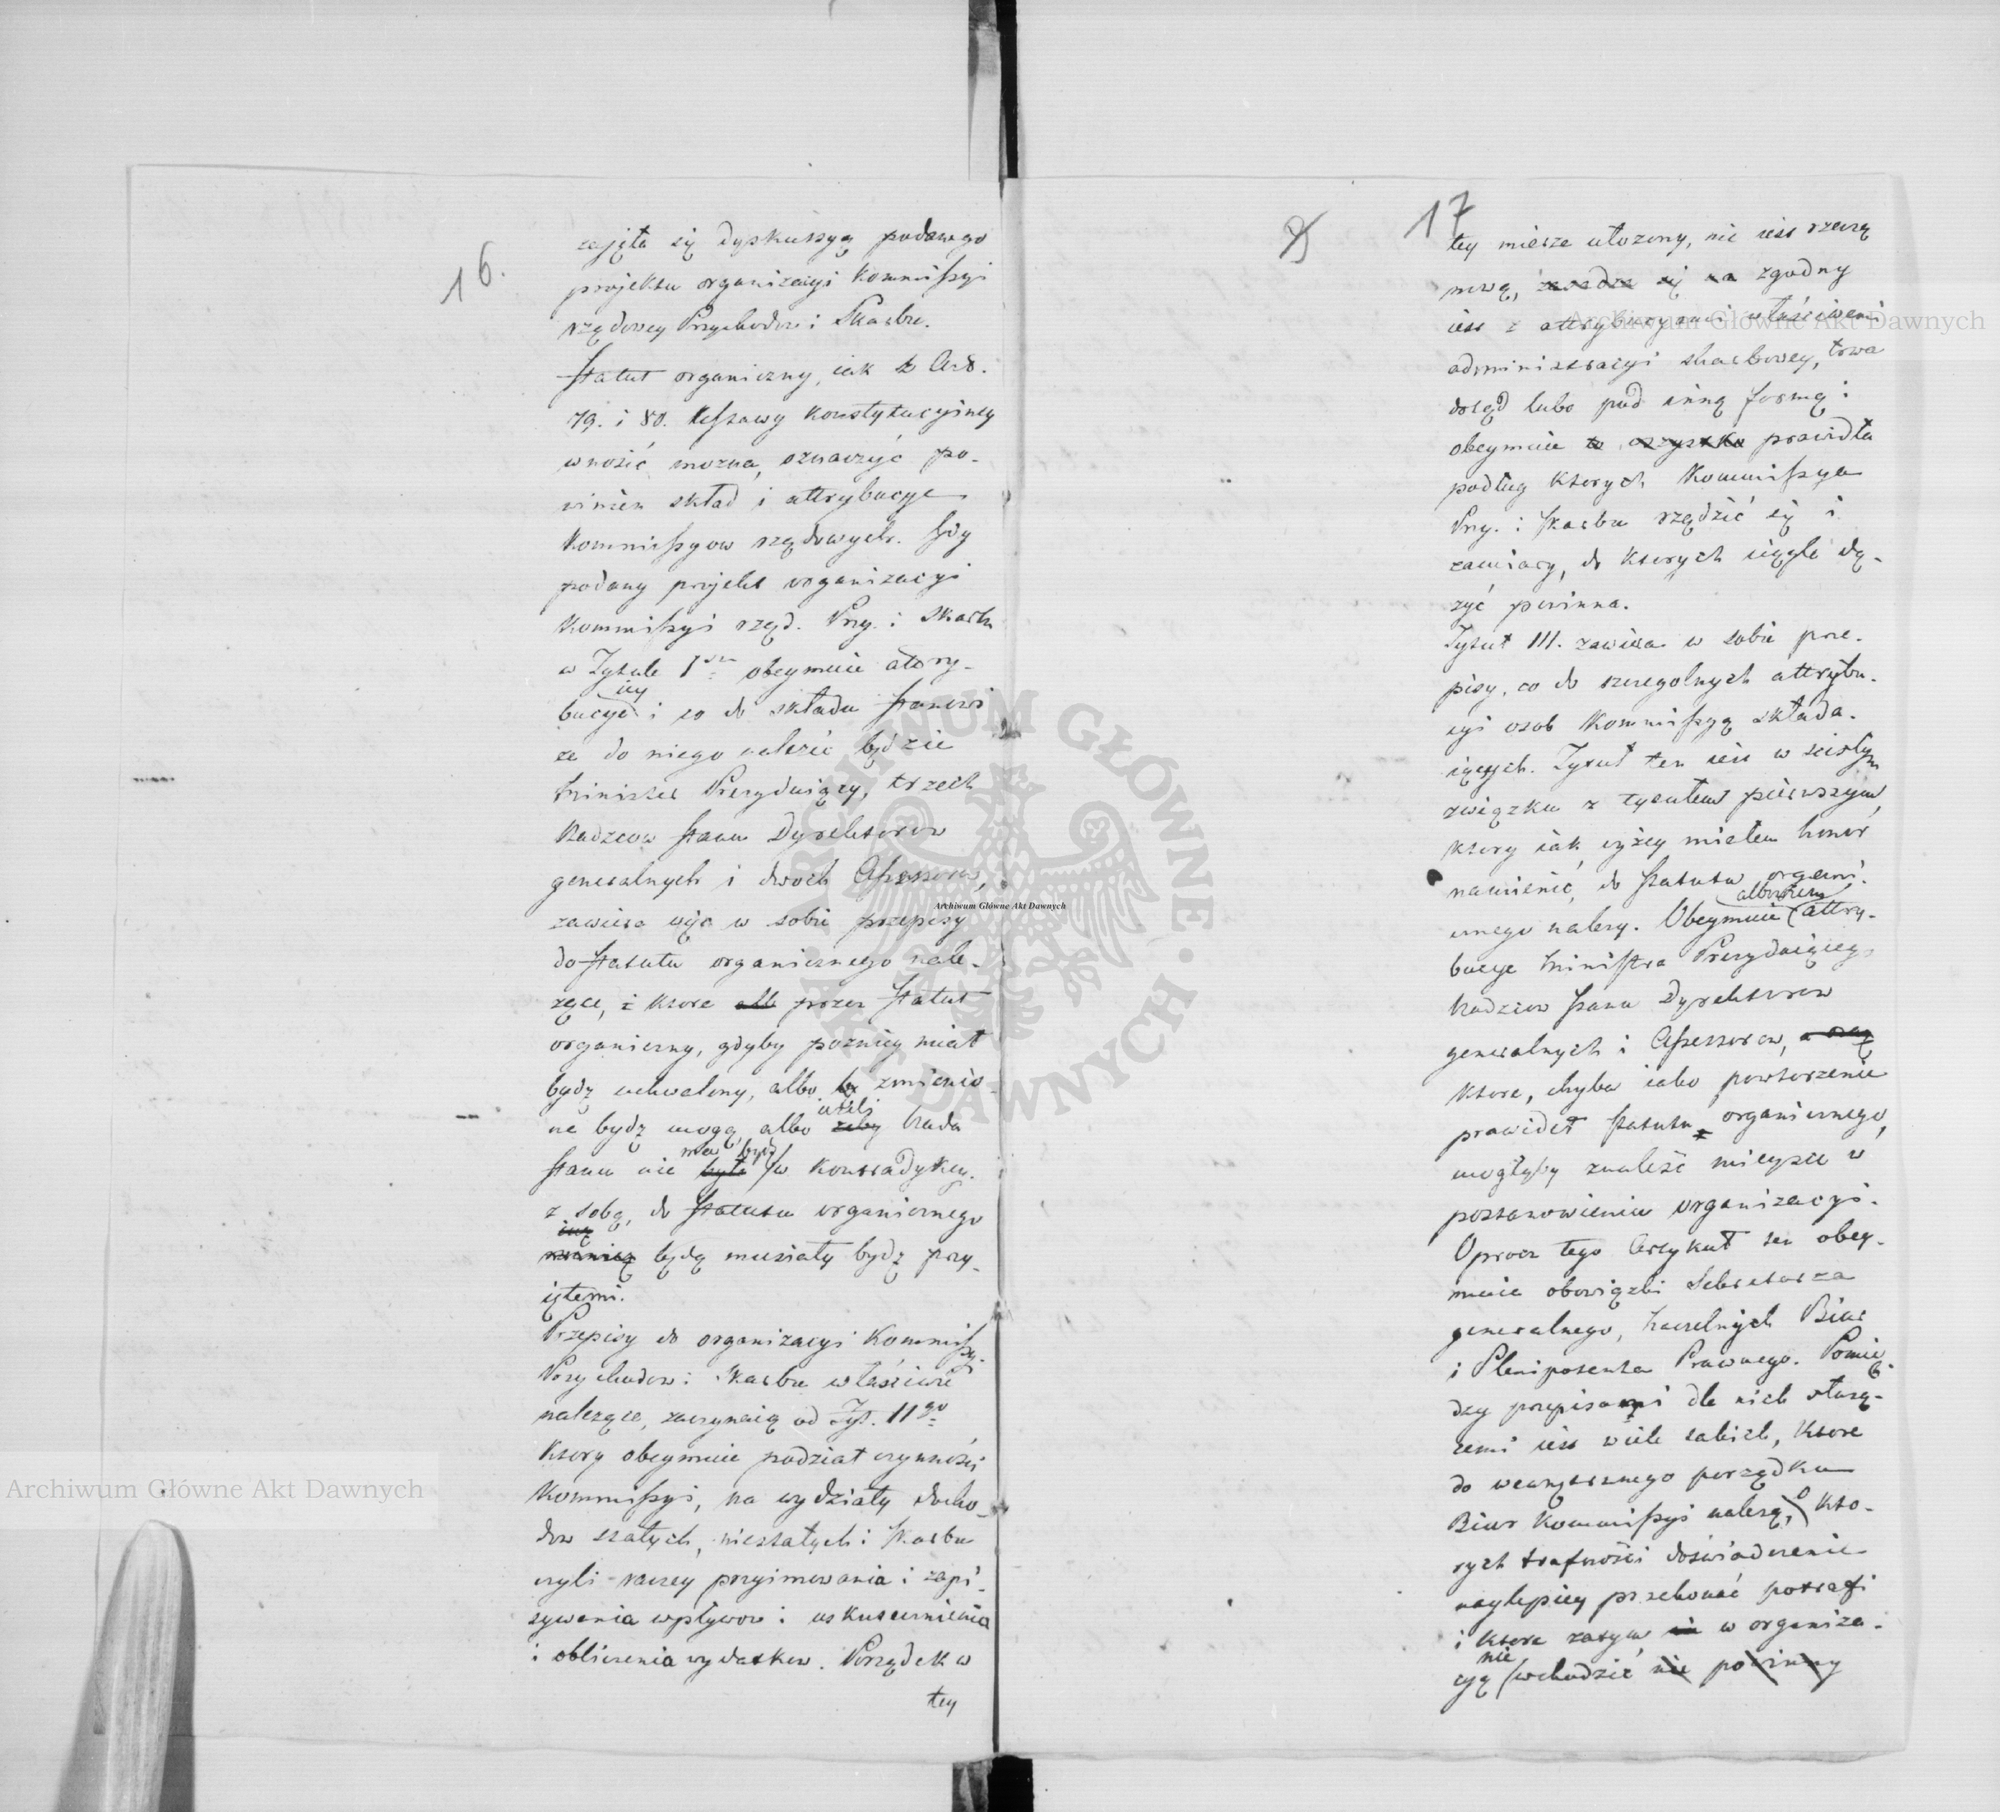 16.
zajęła się dyskussyą podanego
projektu organizacyi Kommissyi
rządowey Przychodow i Skarbu.
Statut organiczny, iak z Art.
79. i 80. Ustawy Konstytucyiney
wnosić można, oznaczyć po-
winien skład i attrybucye
Kommissyow rządowych. Gdy
podany projekt organizacyi
Kommissyi rząd. Przy. i Skarbu
w Tytule I obeymuie attry-
iey
bucye i co do składu stanowi
że do niego należeć będzie
Minister Prezyduiący, trzech
Radzcow Stanu Dyrektorow
generalnych i dwoch Assessorow,
zawiera więc w sobie przepisy
do Statutu organicznego nale-
żące, i ktore alb przez Statut
organiczny, gdyby poźniey miał
bydź uchwalony, albo zmienio-
ieżeli
ne bydź mogą, albo żeby Rada
ma bydź
Stanu nie była w kontradykcyi
z sobą, do Statutu organicznego
będą musiały bydź przy-
iętemi.
Przepisy do organizacyi Kommissyi
Przychodow i Skarbu właściwie
należące, zaczynaią od Tyt. II go
Ktory obeymuie podział czynności
Kommissyi, na wydziały docho-
dow stałych, niestałych i Skarbu
czyli raczey przyimowania i zapi-
sywania wpływow i uskutecznienia
i obliczenia wydatkow. Porządek w
tey
17
tey mierze ułożony, nie iest rzeczą
nową, zgadza się na zgodny
iest z attrybucyami właściwemi
administracyi skarbowey, trwa
dotąd lubo pod inną formą i
obeymuie to wszystko prawidła
podług ktorych Kommissya
Przy. i Skarbu rządzić się i
zamiary, do ktorych ciągle dą-
żyć powinna.
Tytuł III. zawiera w sobie prze-
pisy, co do szczegolnych attrybu-
cyi osob Kommissyą składa-
iących. Tytuł ten iest w ścisłym
związku z tytułem pierwszym,
ktory iak wyżey miałem honor
namienić, do Statutu organi-
albowiem
cznego należy. Obeymuie attry-
bucye Ministra Prezyduiącego
Radzcow Stanu Dyrektorow
generalnych i Assessorow,
ktore, chyba iako powtorzenie
prawideł Statutu organicznego,
mogłyby znaleść mieysce w
postanowieniu organizacyi.
Oprocz tego Artykuł ten obey-
muie obowiązki Sekretarza
generalnego, Naczelnych Biur
i Plenipotenta Prawnego. Pomię-
dzy przepisami dla nich służą-
cemi iest wiele takich, ktore
do wewnętrznego porządku
Biur Kommissyi należą, o kto-
rych trafności doświadczenie
naylepiey przekonać potrafi
i ktore zatym w organiza-
nie
cyą wchodzić nie powinny
Archiwum Główne Akt Dawnych
Archiwum Główne Akt Dawnych
Archiwum Główne Akt Dawnych
ARCHIWUM GŁÓWNE AKT DAWNYCH